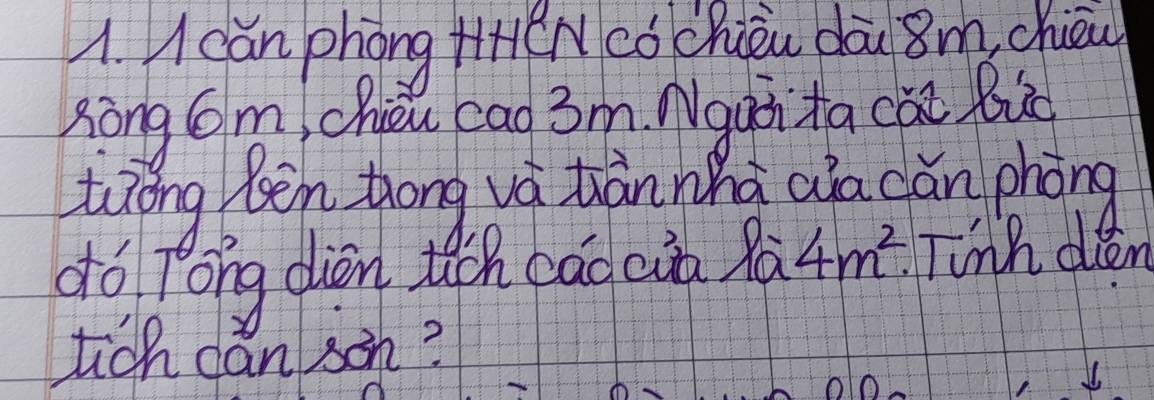 1. 1 căn phòng HHCN có chiều dài 8m, chiều
rộng 6m, chiều cao 3m. Người ta cắt bức
tường bên trong và trần nhà của căn phòng
đó. Tổng diện tích các cửa là 4m². Tính diện
tích cần sơn?